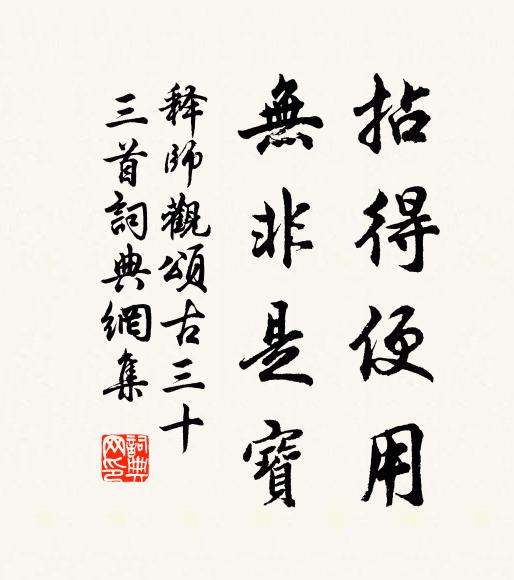 拈得便用
無非是寶
釋師觀頌古三十
三首詞典網集
詞典网印